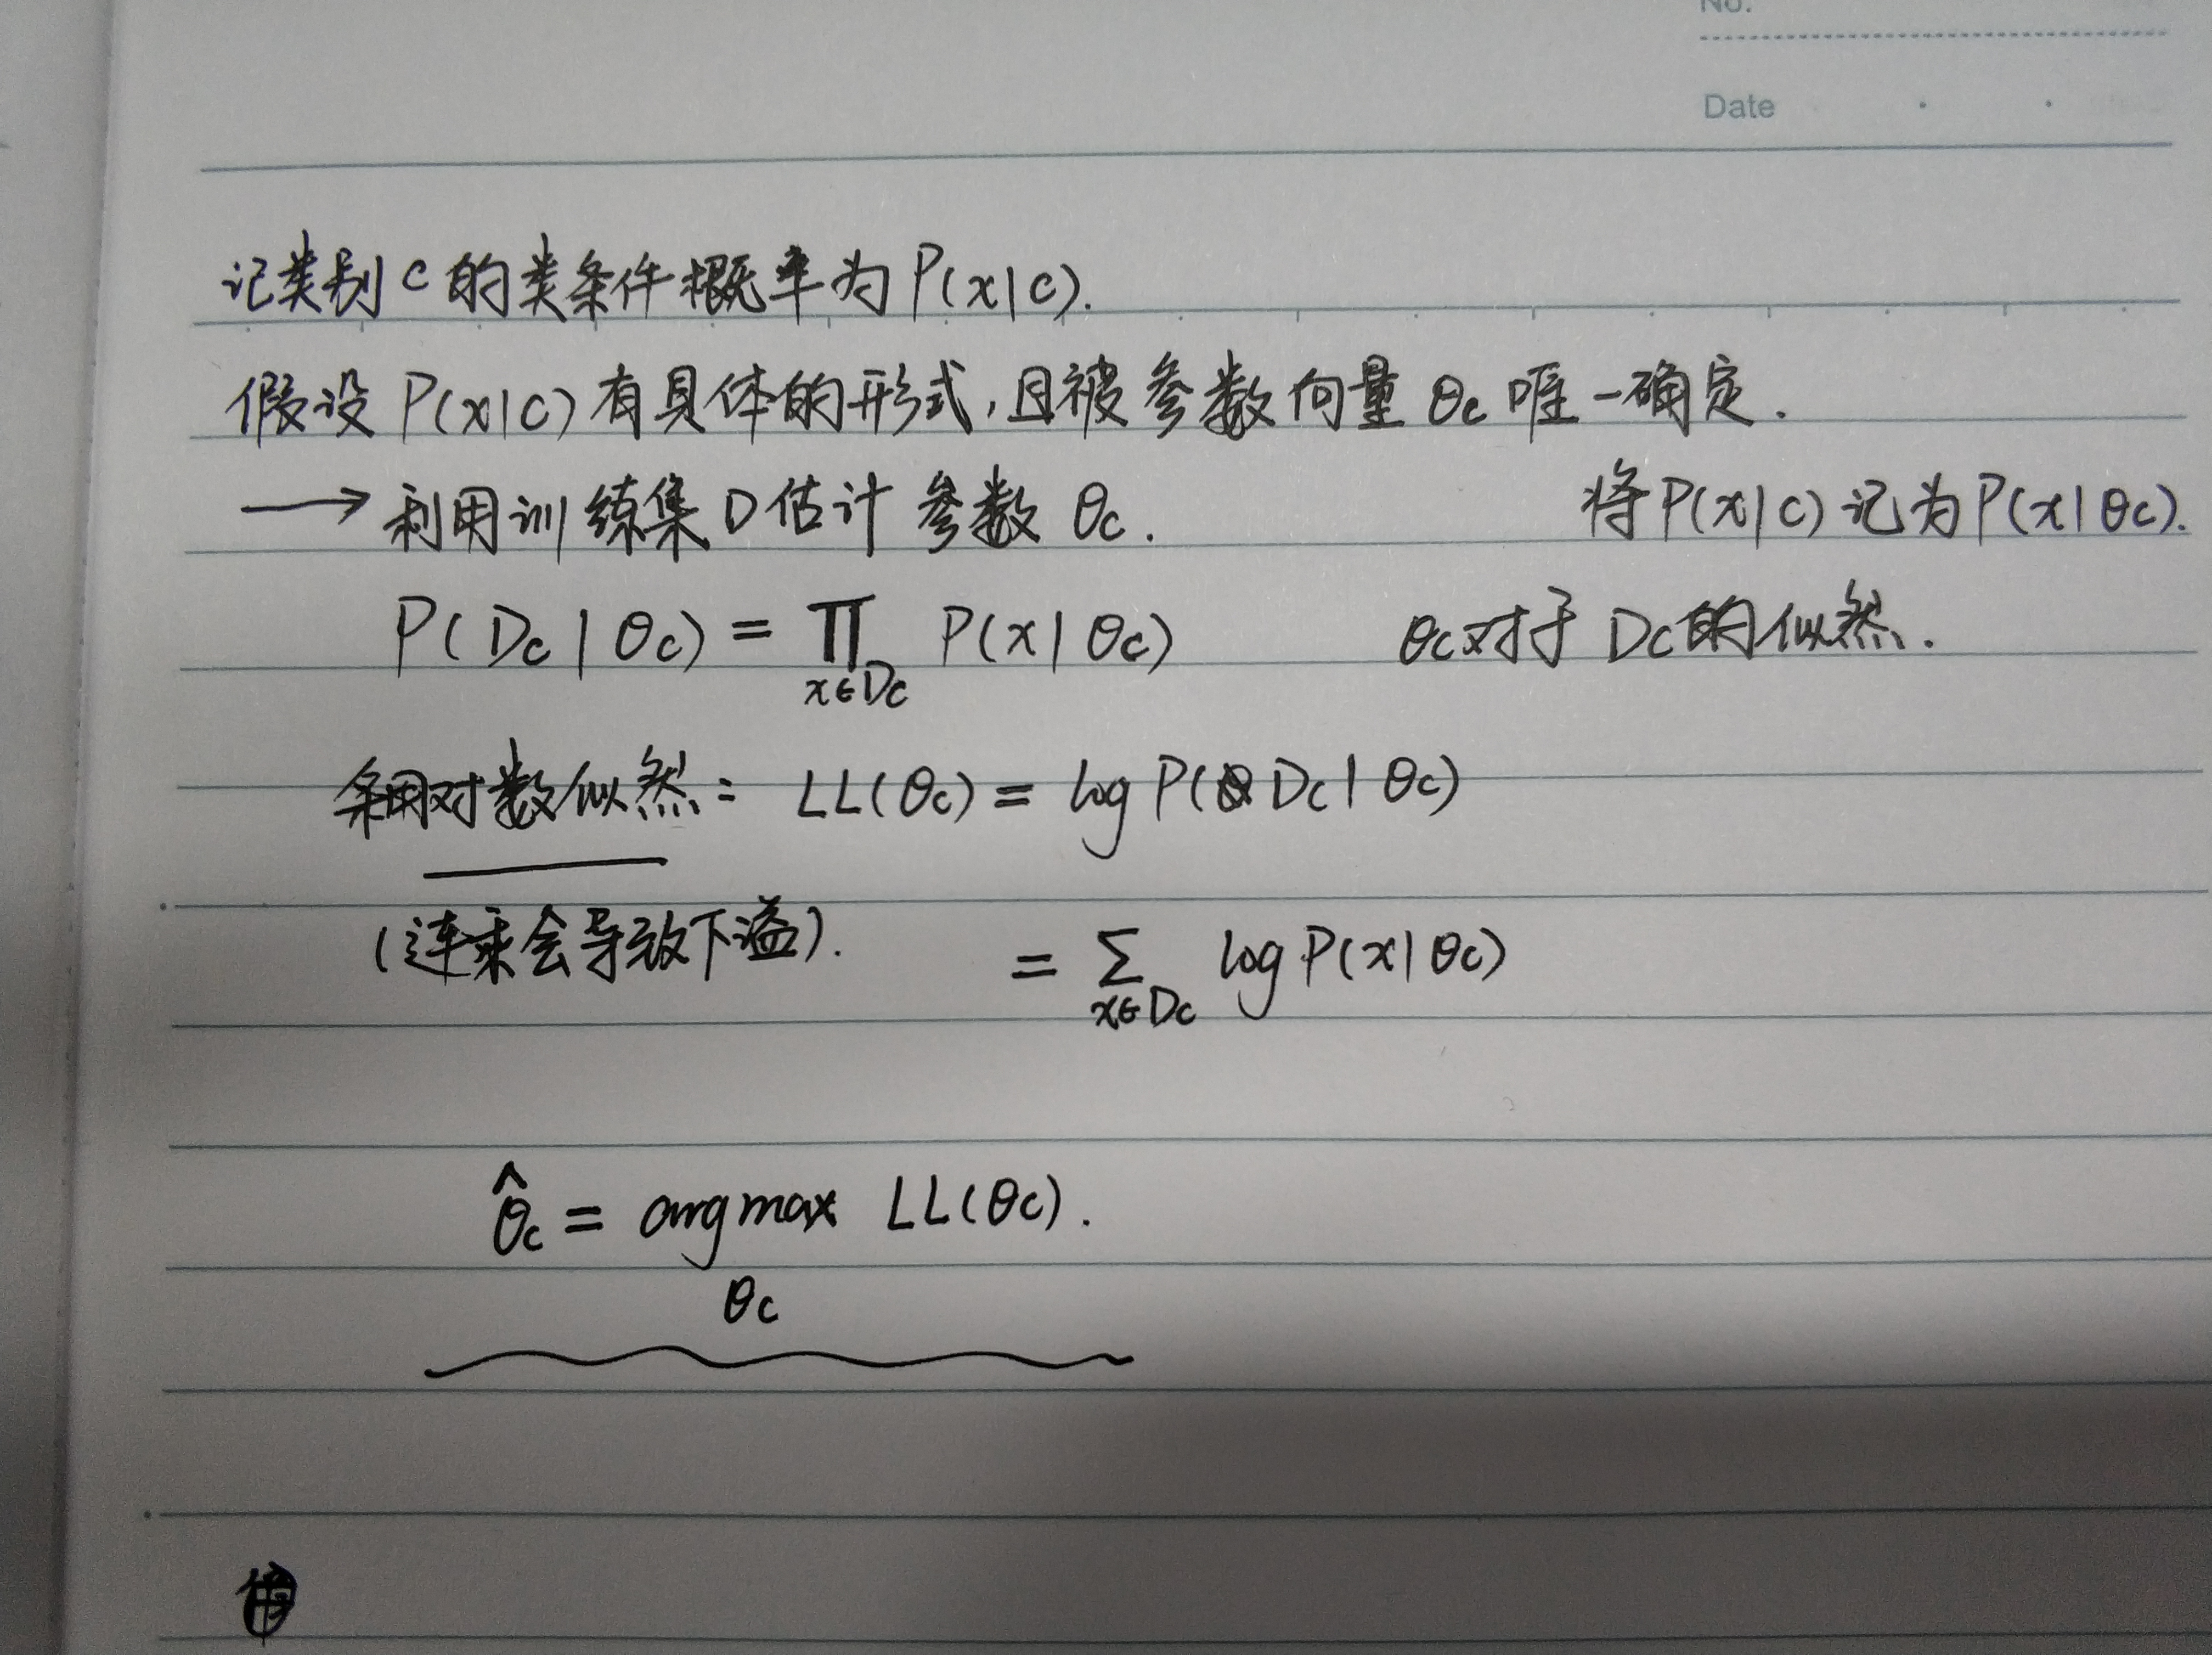 No.
Date
记类别c的类条件概率为P(x|c).
假设P(x|c)有具体的形式,且被参数向量θc唯一确定.
→利用训练集D估计参数θc. 将P(x|c)记为P(x|θc).
P(Dc|θc)=∏ P(x|θc) θc对于Dc的似然.
x∈Dc
对数似然: LL(θc)=log P(Dc|θc)
(连乘会导致下溢). =∑ log P(x|θc)
x∈Dc
θ̂c=argmax LL(θc).
θc